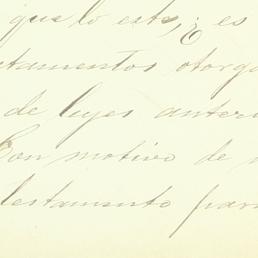 que lo este, y es
tamentos otorga
de leyes anteri
Con motivo de
testamento para